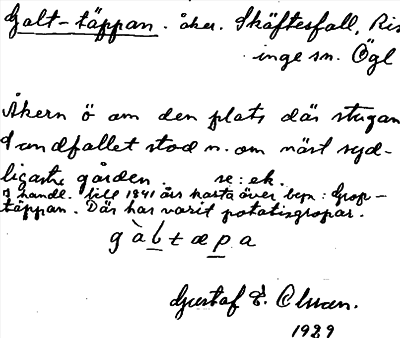 Galt-täppan. åker. Skäftesfall, Ris
inge sn. Ögl
Åkern ö om den plats där stugan
Sandfallet stod n. om näst syd-
ligaste gården. se: ek.
I handl. till 1841 års karta över byn: Grop-
täppan. Där har varit potatisgropar.
gàltæpa
Gustaf E. Olsson.
1929